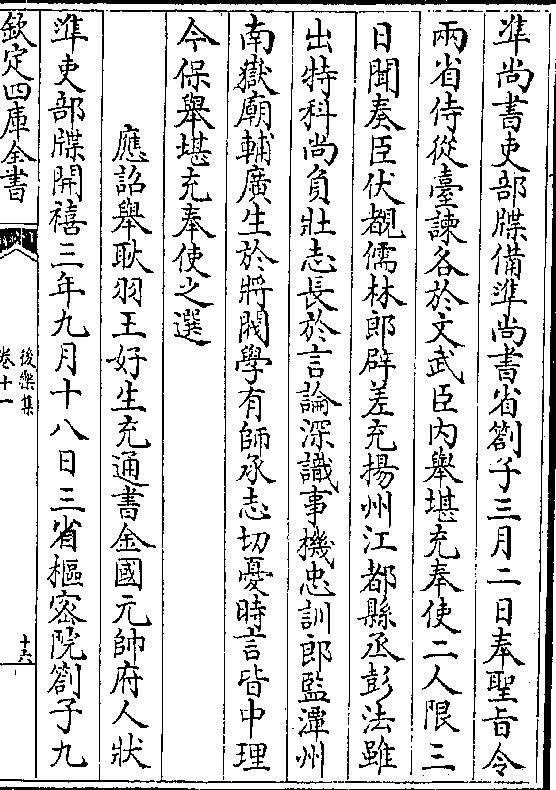 準尚書吏部牒備準尚書省劄子三月二日奉聖旨令
兩省侍從臺諫各於文武臣內舉堪充奉使二人限三
日聞奏臣伏覩儒林郎辟差充揚州江都縣丞彭法雖
出特科尚負壯志長於言論深識事機忠訓郎監潭州
南嶽廟輔廣生於將閥學有師承志切憂時言皆中理
今保舉堪充奉使之選
應詔舉耿羽王好生充通書金國元帥府人狀
準吏部牒開禧三年九月十八日三省樞密院劄子九
欽定四庫全書
後樂集
卷十一
十六